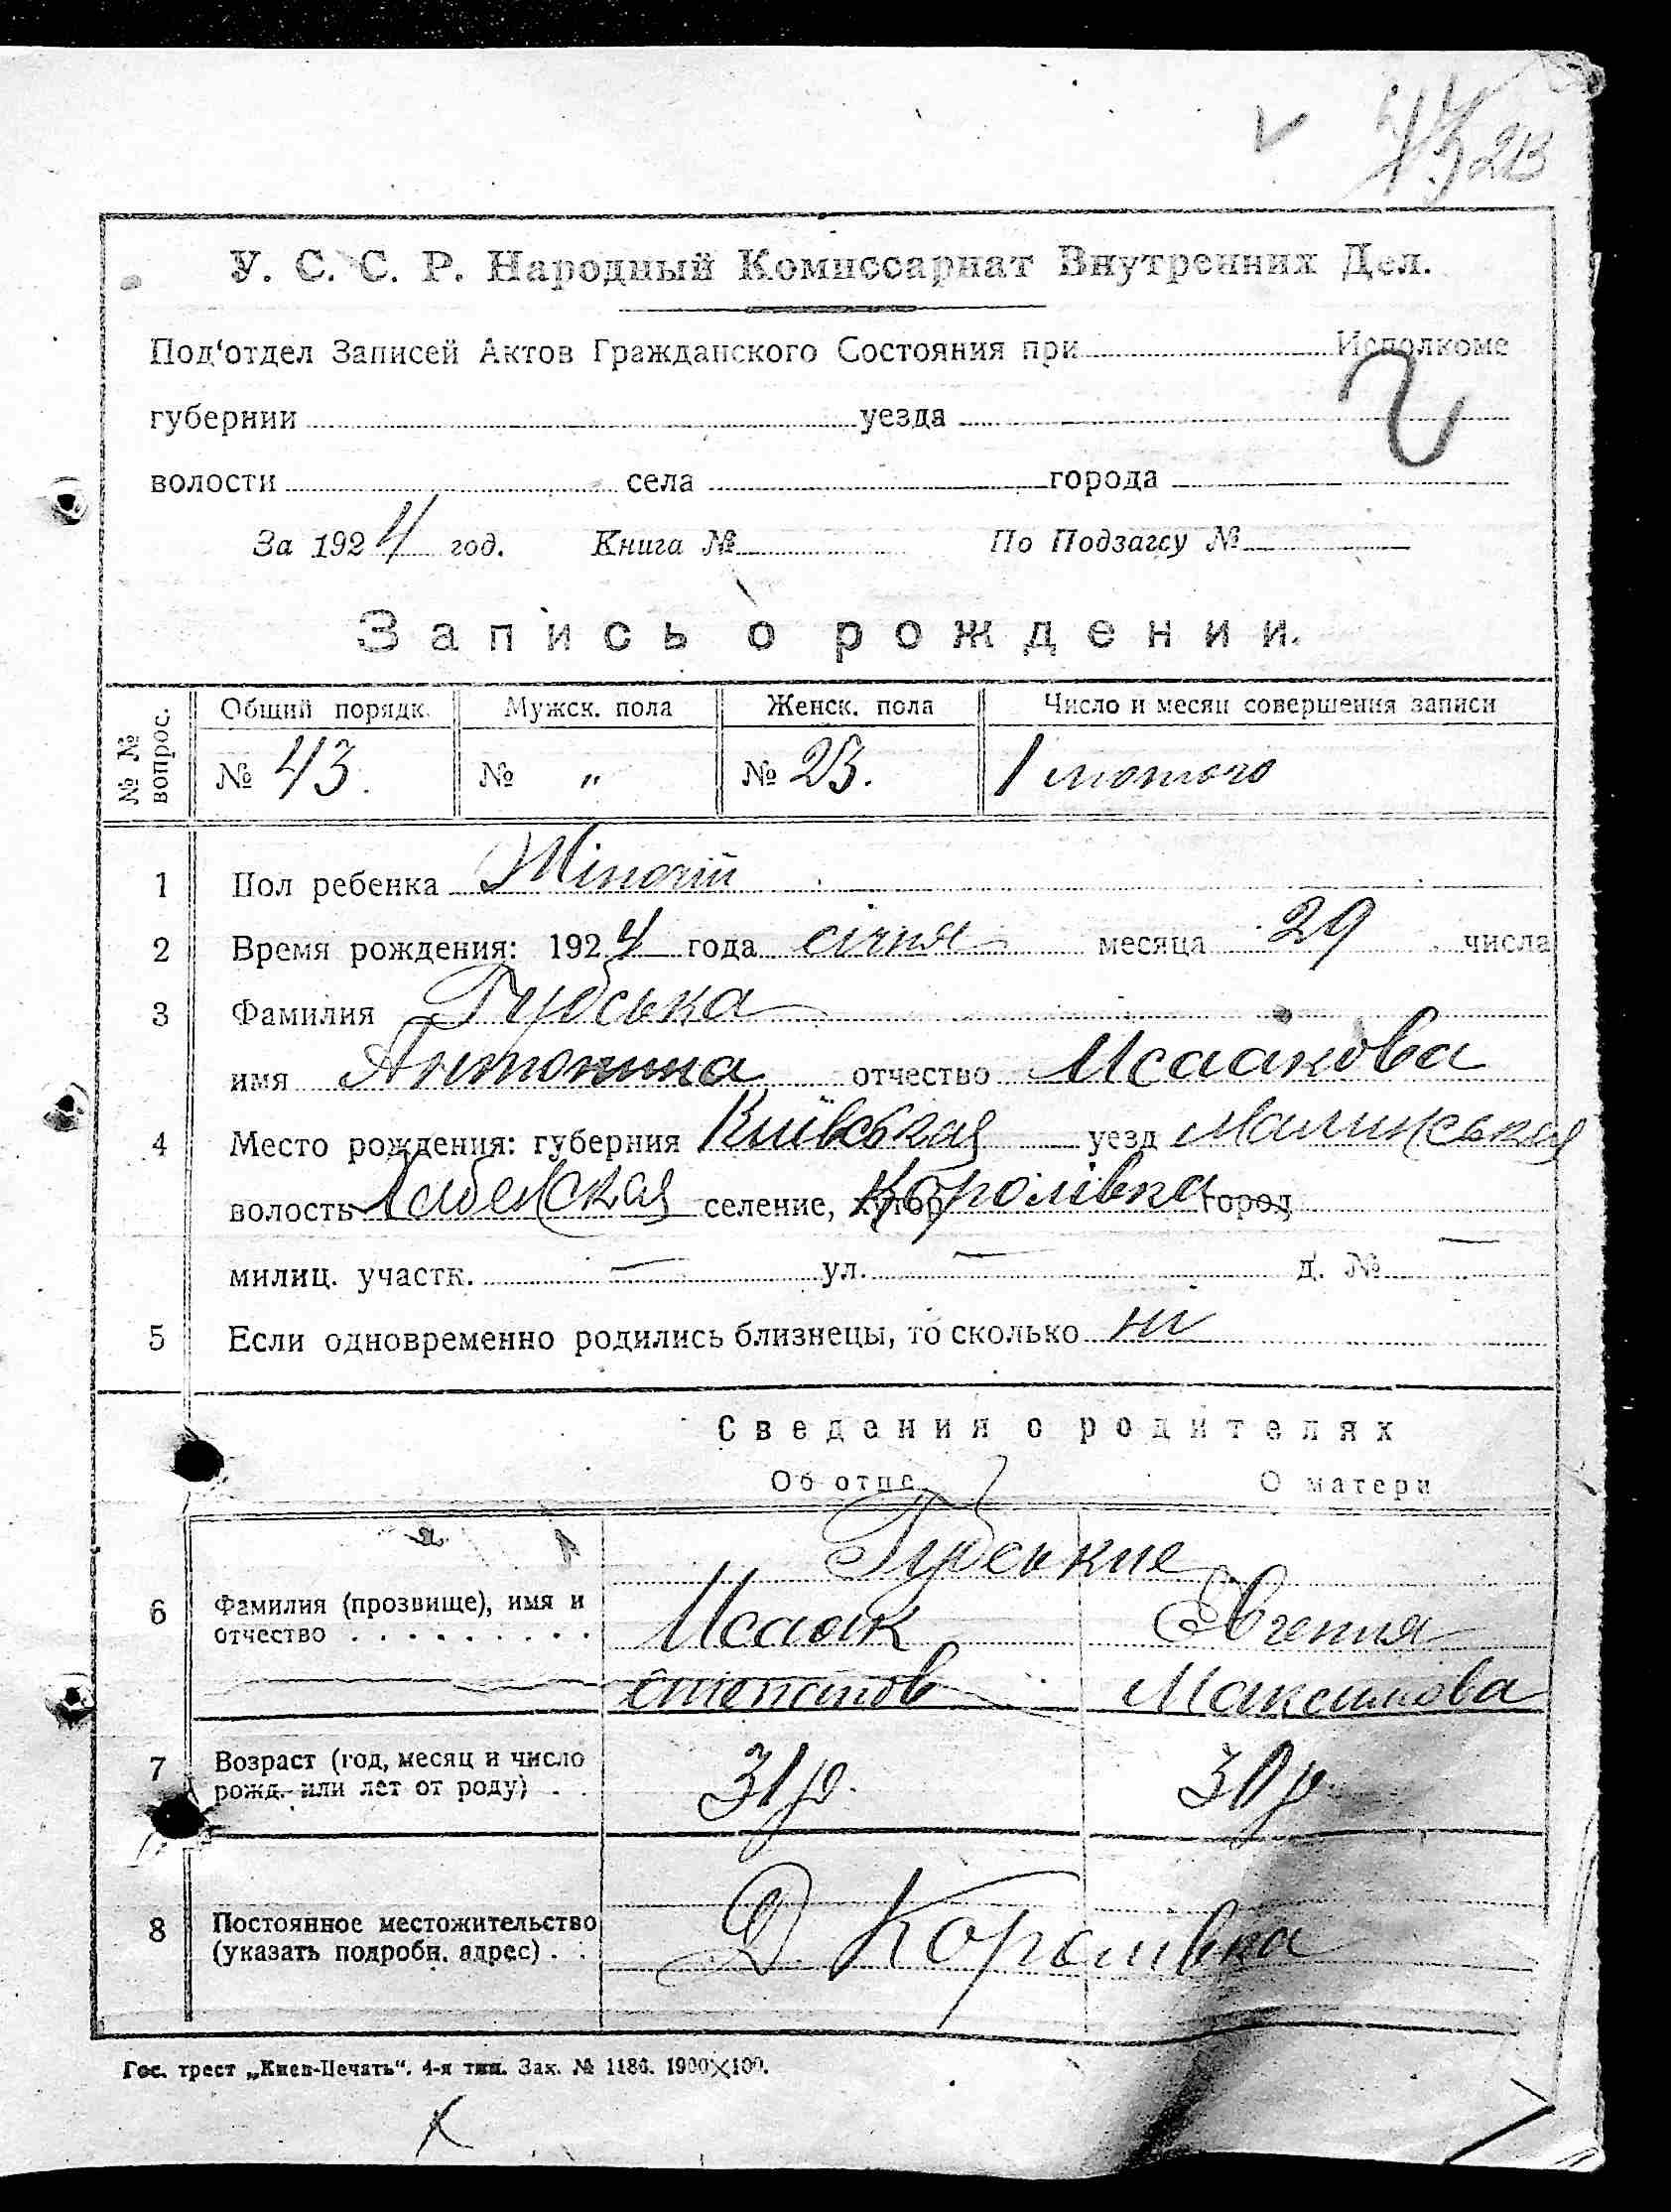 У. С. С. Р. Народный Комиссариат Внутренних Дел.
Под‘отдел Записей Актов Гражданского Состояния при Исполкоме
губернии уезда
волости села города
За 1924 год. Книга № По Подзагсу №
Запись о рождении.
№ № вопрос. Общий порядк. Мужск. пола Женск. пола Число и месяц совершения записи
№ 43. № „ № 23. 1 лютого
1 Пол ребенка Жіночій
2 Время рождения: 1924 года січня месяца 29 числа
3 Фамилия Губська
имя Антонина отчество Исаакова
4 Место рождения: губерния Київская уезд Малинський
волость Хабенская селение, хутор Королівка город
милиц. участк. — ул. — д. № —
5 Если одновременно родились близнецы, то сколько ні
Сведения о родителях
Об отце О матери
Губськие
6 Фамилия (прозвище), имя и Исаак Євгения
отчество . . . . . . . . .
степанов Максимова
7 Возраст (год, месяц и число 31 р. 30 р.
рожд. или лет от роду) . .
8 Постоянное местожительство Д Королівка
(указать подробн. адрес) . .
Гос. трест „Киев-Печать“. 4-я тип. Зак. № 1186. 1900×100.